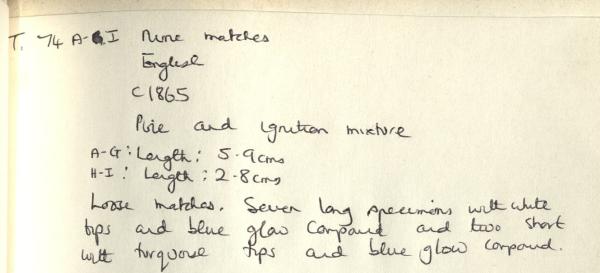 T. 74 A-I Nine matches
English
C1865
Pine and ignition mixture
A-G: Length: 5.9cms
H-I: Length: 2.8cms
Loose matches. Seven long specimens with white
tips and blue glow compound and two short
with turquoise tips and blue glow compound.